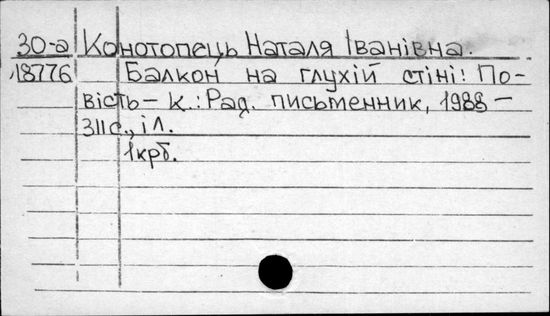 30-а Конотопець Наталя Іванівна.
18776 Балкон на глухій стіні: По-
вість – К.: Рад. письменник, 1988 –
311с., іл.
1крб.